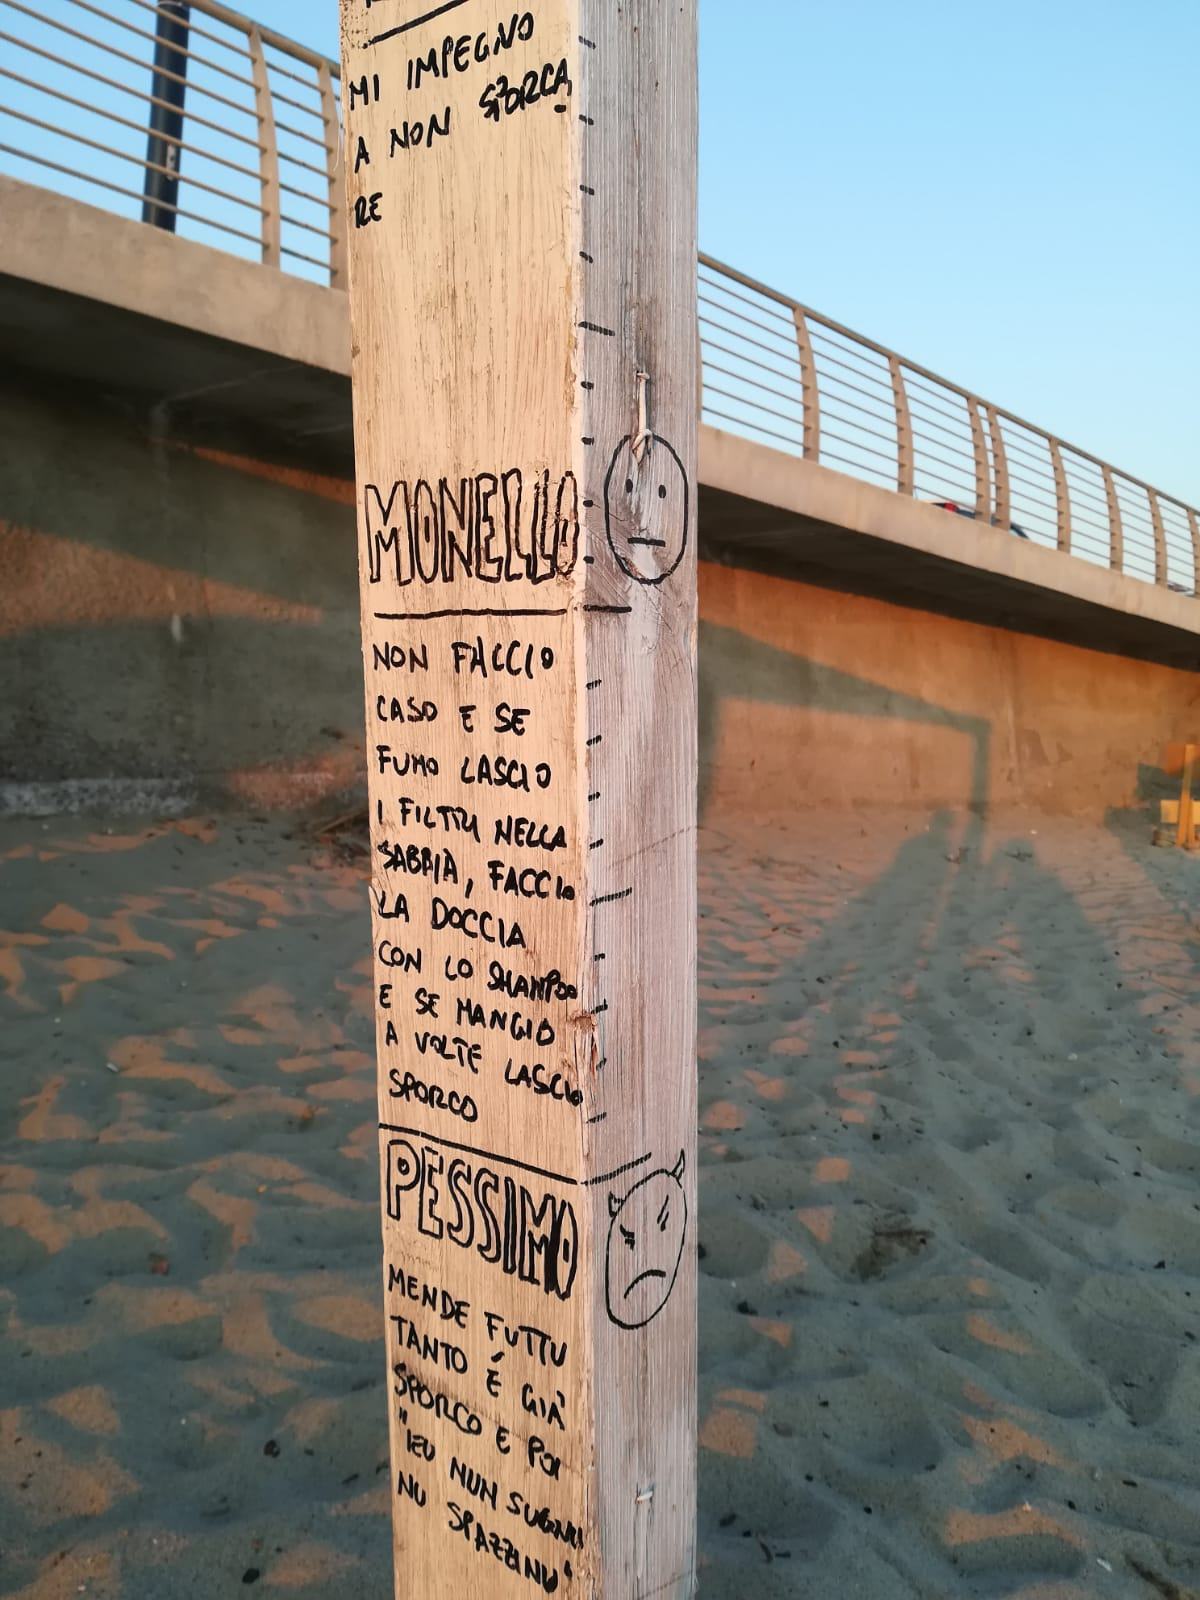 MI IMPEGNO
A NON SPORCA
RE
MONELLO
NON FACCIO
CASO E SE
FUMO LASCIO
I FILTRI NELLA
SABBIA, FACCIO
LA DOCCIA
CON LO SHAMPOO
E SE MANGIO
A VOLTE LASCIO
SPORCO
PESSIMO
MENDE FUTTU
TANTO È GIÀ
SPORCO E POI
"IEU NUN SUGNU
NU SPAZZINU"